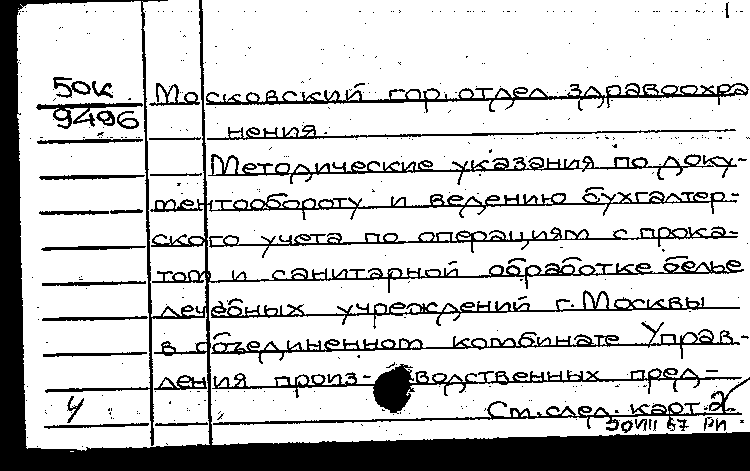 50к
9496
Московский гор. отдел здравоохра
нения.
Методические указания по доку-
ментообороту и ведению бухгалтер-
ского учета по операциям с прока-
том и санитарной обработке белье
лечебных учреждений г. Москвы
в объединенном комбинате Управ-
ления произ-водственных пред-
См. след. карт. 2
4
50 VIII 67 РП